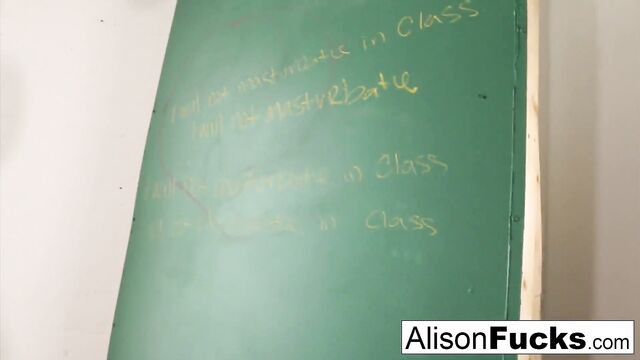 I will not masturbate in Class
I will not masturbate
masturbate in Class
in Class
AlisonFucks.com